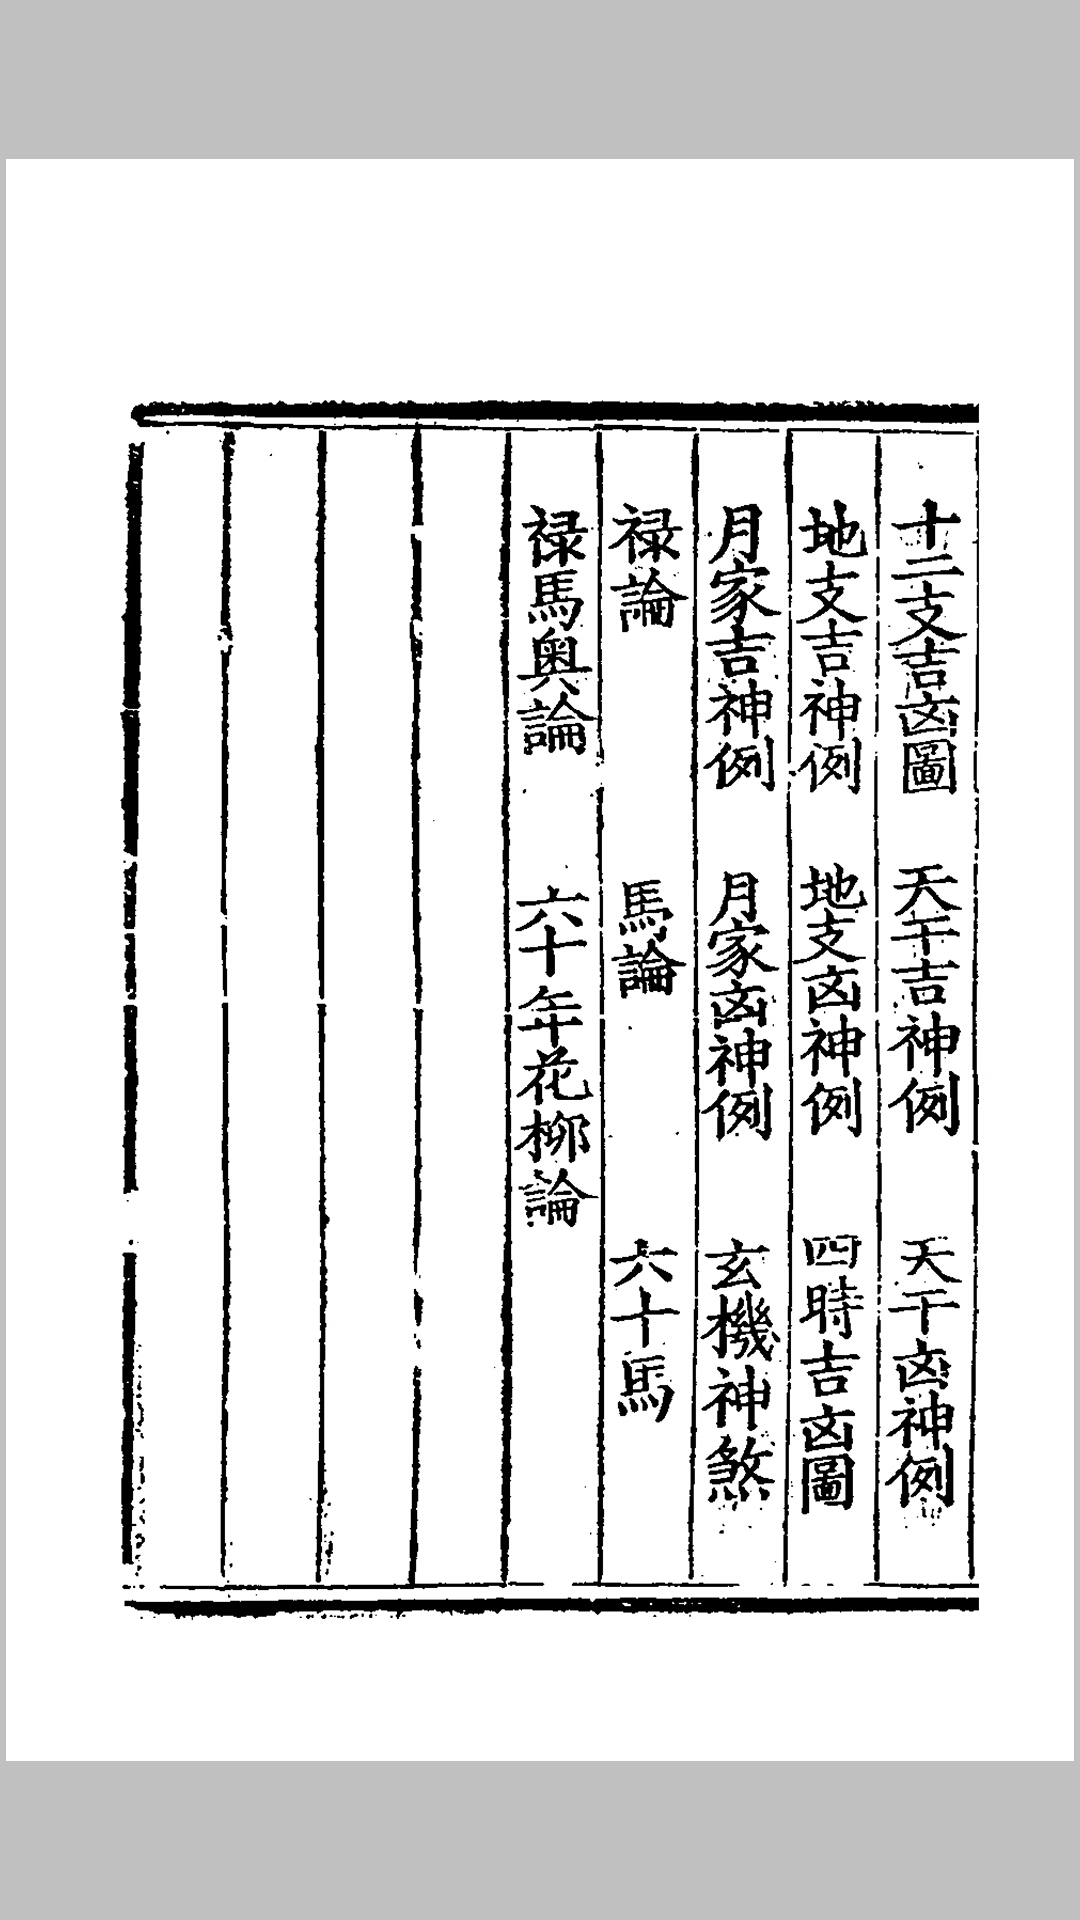 十二支吉凶圖 天干吉神例 天干凶神例
地支吉神例 地支凶神例 四時吉凶圖
月家吉神例 月家凶神例 玄機神煞
禄論 馬論 六十馬
禄馬奥論 六十年花柳論